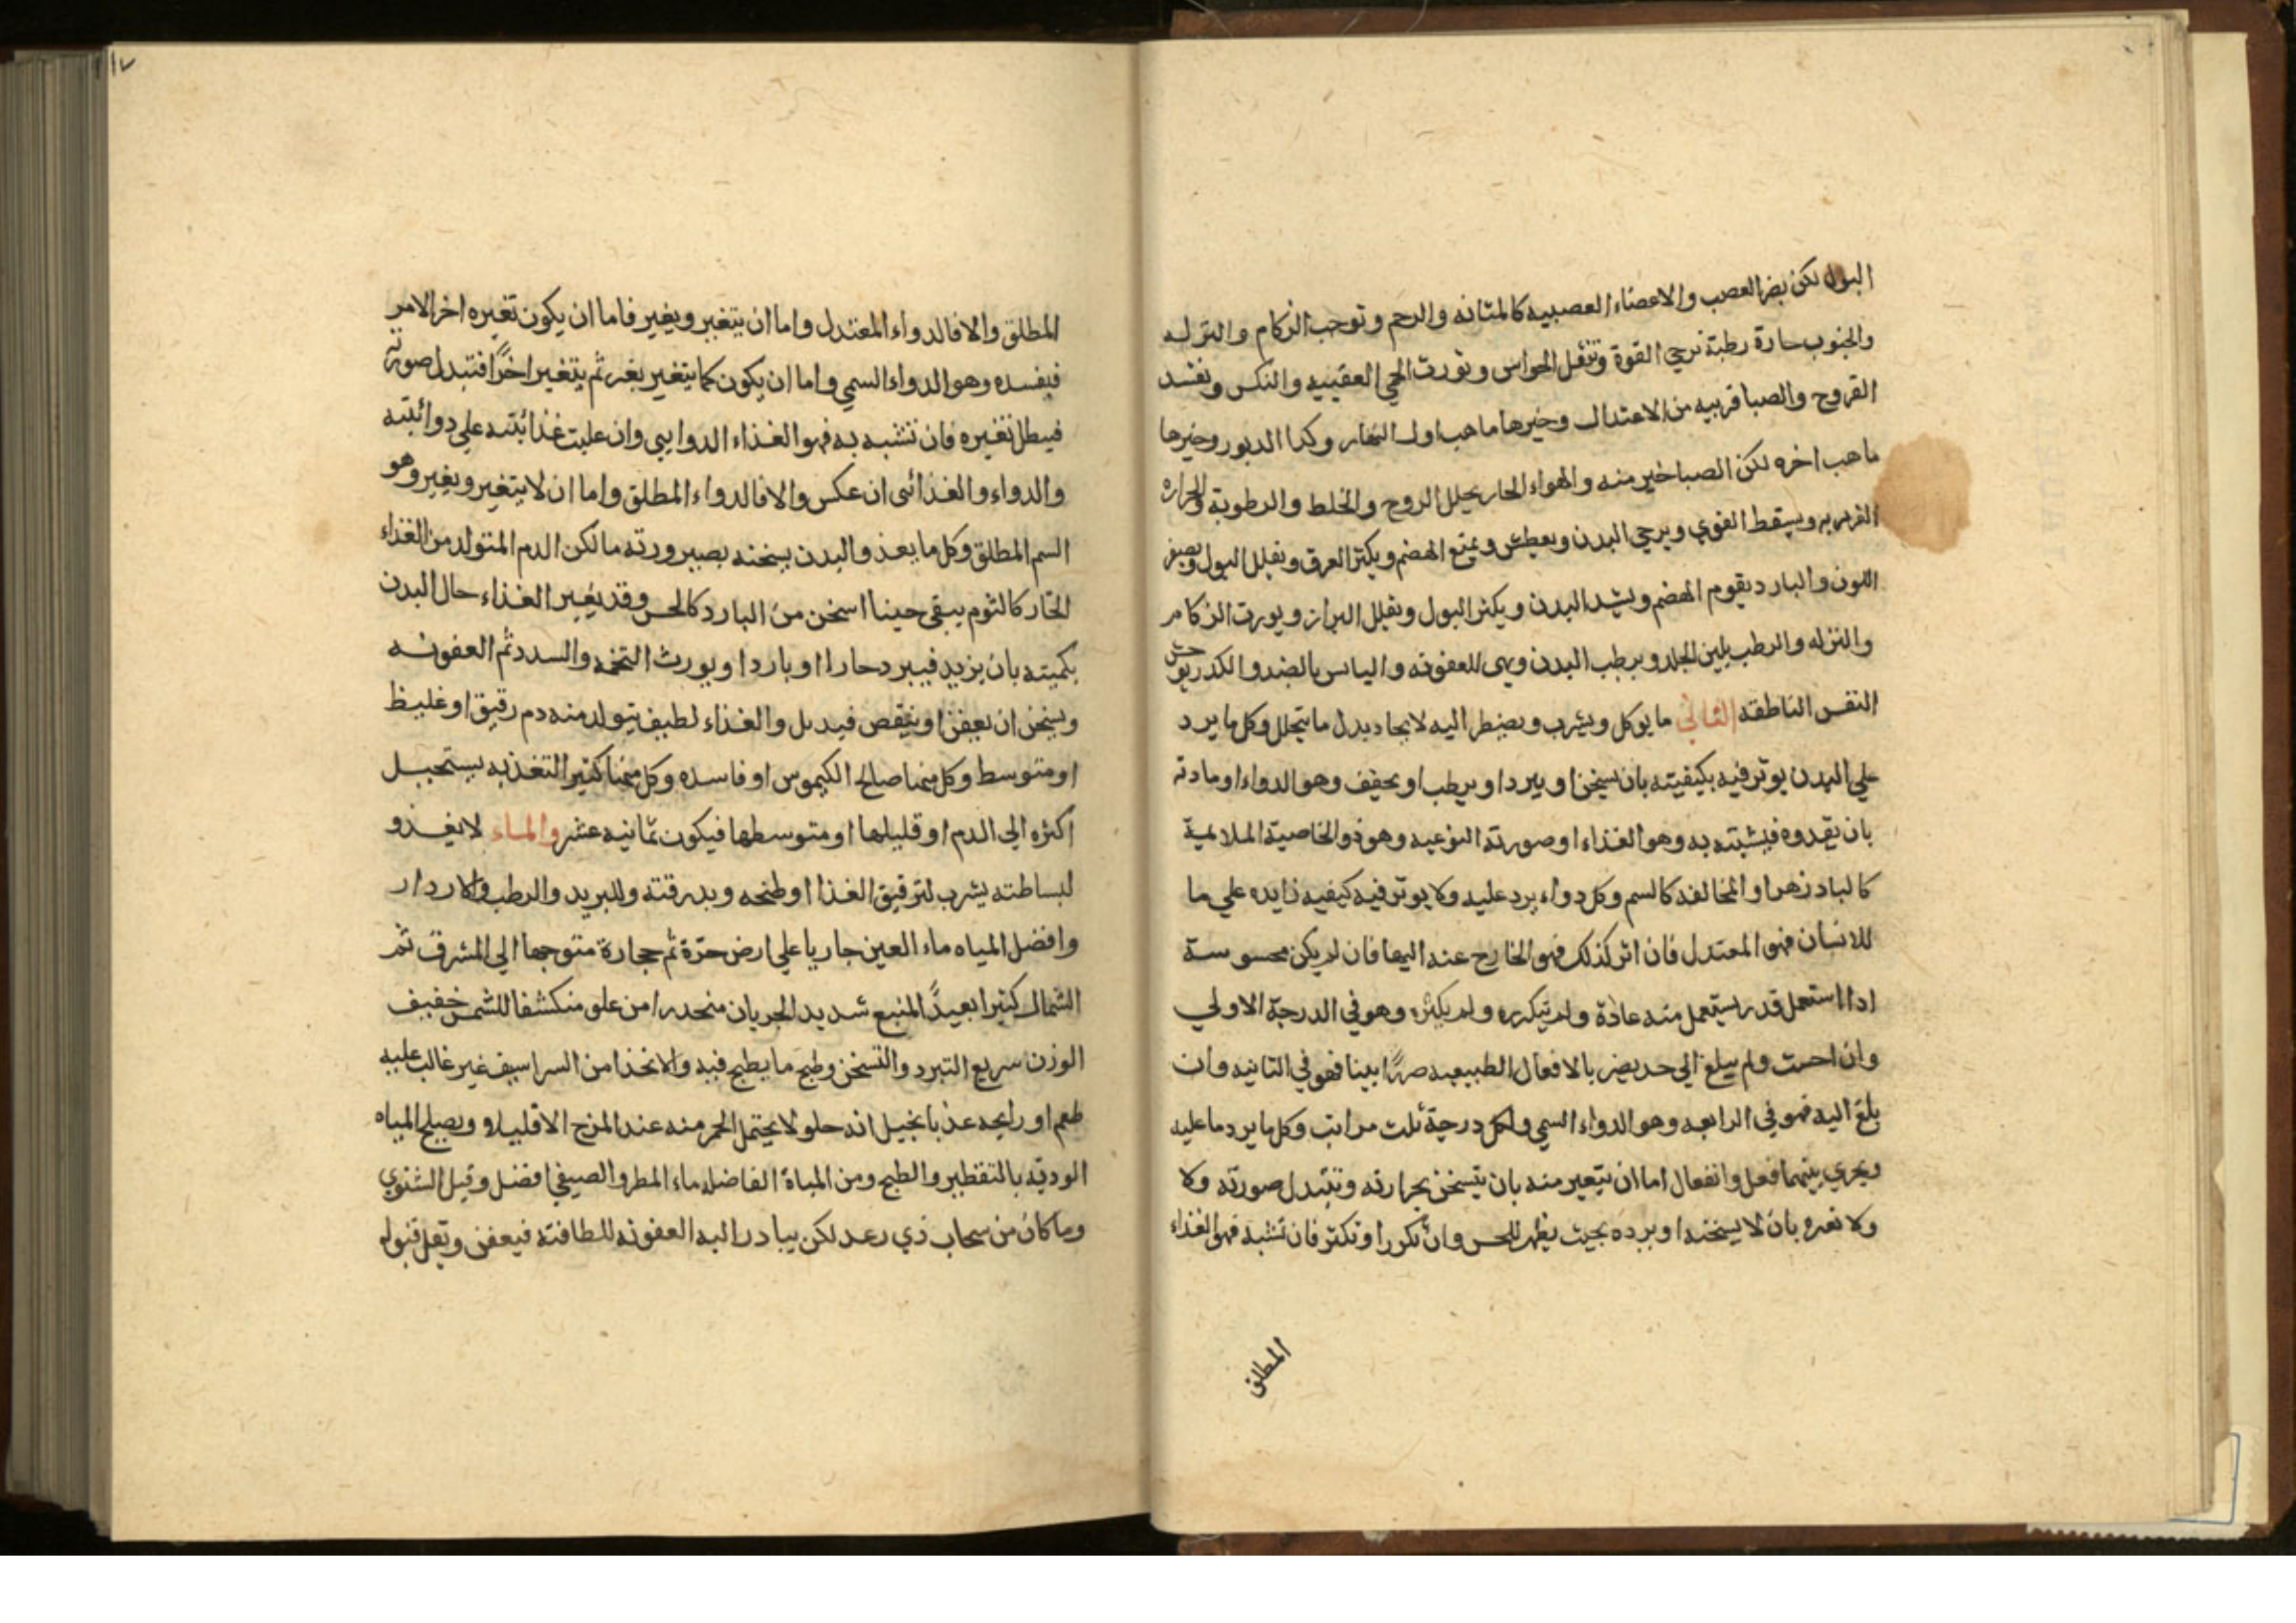 البول لكن يضر العصب والاعضاء العصبيه كالمثانه والرحم وتوجب الزكام والنزله
والجنوب حارة رطبة ترخي القوة وتثقل الحواس وتورث الحمي العفنيه والنكس وتفسد
القروح والصبا قريبه من الاعتدال وخيرها ما هب اول النهار وكذا الدبور وخيرها
ما هب اخره لكن الصبا خير منه والهواء الحار يحلل الروح والخلط والرطوبة والحراره
الغريزيه ويسقط القوي ويرخي البدن ويعطش ويمنع الهضم ويكثر العرق ويقلل البول ويصفر
اللون والبارد يقوم الهضم ويشد البدن ويكثر البول ويقلل البراز ويورث الزكام
والنزله والرطب يلين الجلد ويرطب البدن ويهي للعفونه واليابس بالضد والكدر يوحش
النفس الناطقه الثاني ما يوكل ويشرب ويضطر اليه لايجاد بدل ما يتحلل وكل ما يرد
علي البدن يوثر فيه بكيفيته بان يسخن او يبرد او يرطب او يجفف وهو الدواء او مادته
بان يغدوه فيشبته به وهو الغذاء او صورته النوعيه وهو ذو الخاصية الملايمة
كالبادزهر او المخالفه كالسم وكل دواء يرد عليه ولا يوثر فيه كيفيه زايده علي ما
للانسان فهو المعتدل فان اثر كذلك فهو الخارج عنه اليها فان لم يكن محسوسة
اذا استعمل قدر يستعمل منه عادة ولم يتكرر ولم يكثر وهو في الدرجة الاولي
وان احست ولم يبلغ الي حد يضر بالافعال الطبيعيه ضررًا بينا فهو في الثانيه وان
بلغ اليه فهو في الرابعه وهو الدواء السمي ولكل درجة ثلث مراتب وكل ما يرد ما عليه
ويجري بينهما فعل وانفعال اما ان يتغير منه بان يتسخن بحرارته وتتبدل صورته ولا
ولا تغيره بان لا يسخنه او يرده بحيث يظهر للحس وان تكرر او تكثر فان تشبه فهو الغذاء
المطلق
١٧
المطلق والا فالدواء المعتدل واما ان يتغير ويغير فاما ان يكون تغيره اخر الامر
فيفسده وهو الدواء السمي واما ان يكون كما يتغير يغير ثم يتغير اخرًا فتبدل صورته
فيبطل تغيره فان تشبه به فهو الغذاء الدوايي وان غلبت غذائيته علي دوائيته
والدواء والغذائي ان عكس والا فالدواء المطلق واما ان لا يتغير ويغير وهو
السم المطلق وكل ما يغذو البدن يسخنه بصيرورته ما لكن الدم المتولد من الغذاء
الحار كالثوم يبقي حينا اسخن من البارد كالخس وقد يغير الغذاء حال البدن
بكميته بان يزيد فيبرد حارا او باردا ويورث التخمه والسدد ثم العفونه
ويسخن ان يعفن او ينقص فيدبل والغذاء لطيف يتولد منه دم رقيق او غليظ
او متوسط وكل منها صالح الكيموس او فاسده وكل منها كثير التغذيه يستحيل
اكثره الي الدم او قليلها او متوسطها فيكون ثمانيه عشر والماء لا يغذو
لبساطته يشرب لترقيق الغذا او طبخه وبدرقته وللبريد والرطب والادرار
وافضل المياه ماء العين جاريا علي ارض حرّة ثم حجارة متوجها الي المشرق ثم
الشمال كثيرا بعيدًا المنبع شديد الجريان منحدرا من علو منكشفا للشمس خفيف
الوزن سريع التبرد والتسخن وطبخ ما يطبخ فيه والانخذا من السراسيف غير غالب عليه
طعم او رايحه عذبا يخيل انه حلو لا يحتمل الخمر منه عند المزج الا قليلا ويصلح المياه
الوديه بالتقطير والطبخ ومن المياة الفاضله ماء المطر والصيفي افضل وقيل الشتوي
وما كان من سحاب ذي رعد لكن يبادر اليه العفونه للطافته فيعفن ويقل قبوله